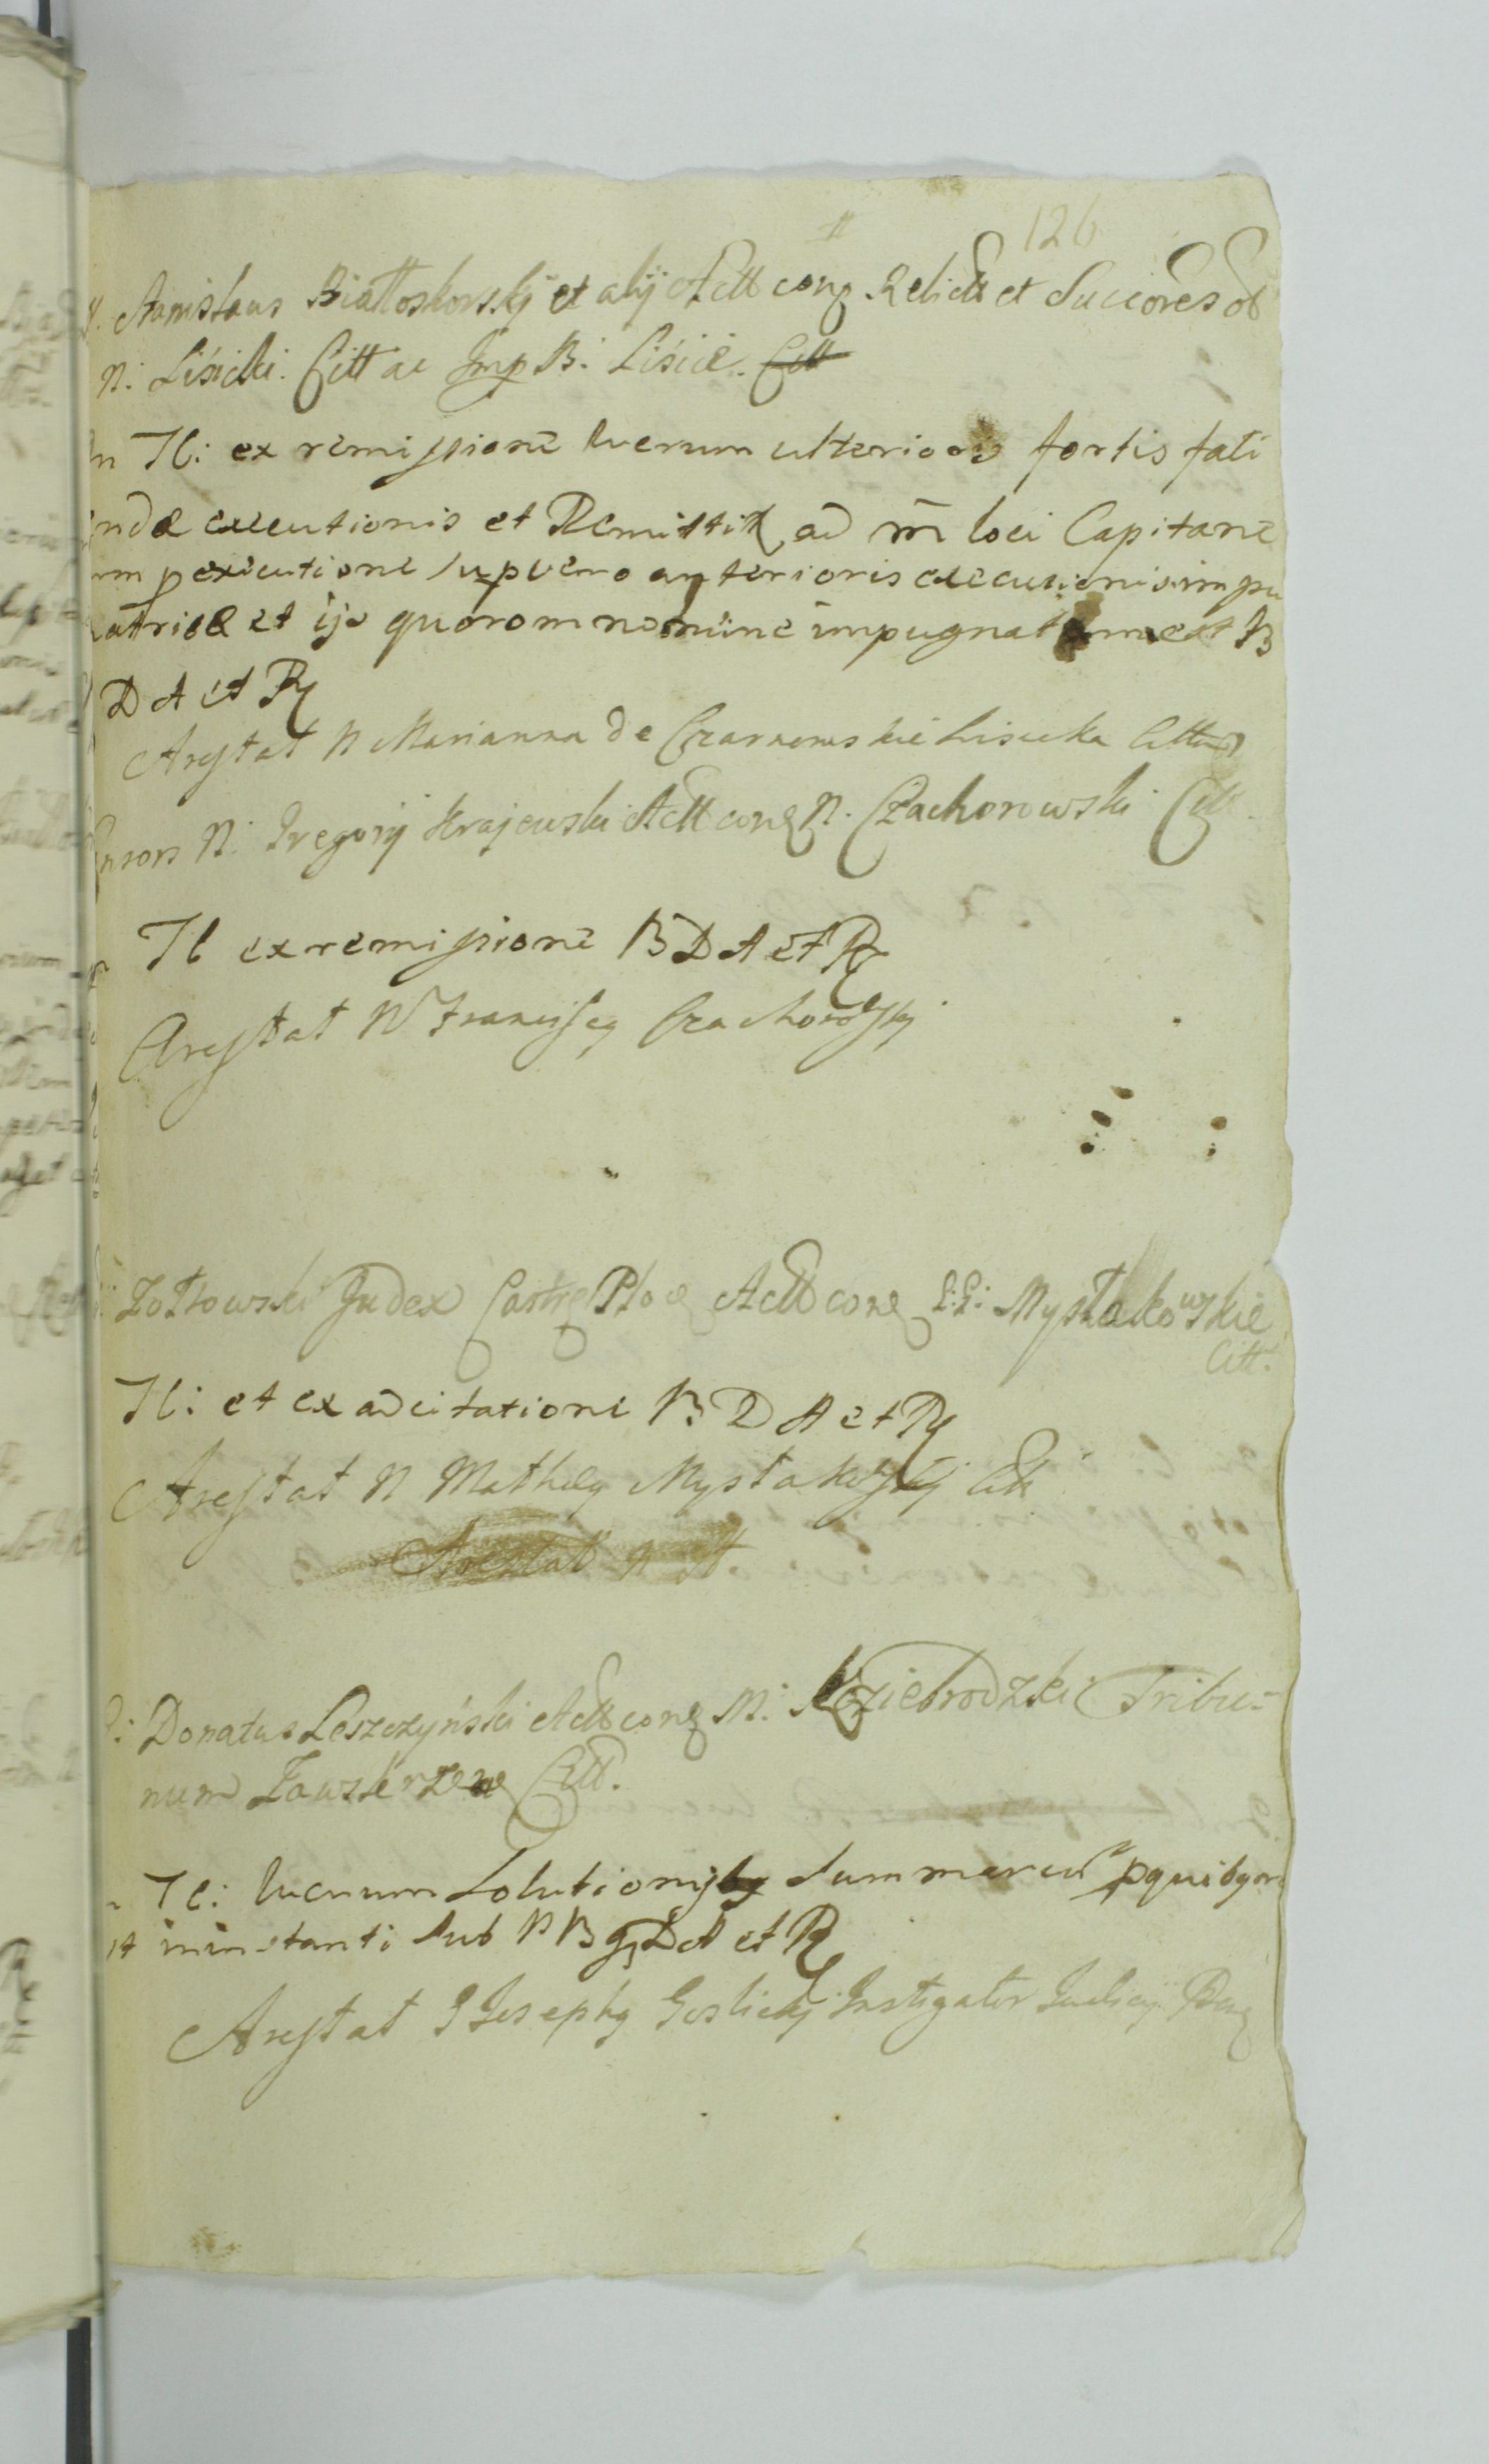 126
Stanislaus Białłoskorskij et alij Actt conq Relictt et Succores ol
N: Lisicki. Citt ac Imp B: Lisicè. Citt
In Il: ex remissione lucrum ulterioris fortis fati
endæ executionis et Remittitt ad m̃ loci Capitane
um p executione sup vero anterioris executionis impu
natricæ et ijs quorom nomine impugnatum est B
D A et R
Arestat N Marianna de Czarnowskie Lisicka Citta
N: Gregorij Krajewski Actt conq N. Czachorowski Citt.
Il ex remissione B D A et R
Arestat N Franciscq Czachorowskj
Zołtowski Judex Castrq Plocq Actt conq G:G: Mystakowskie
Citt.
Il: et ex adcitatione B D A et R
Arestat N Matheq Mystakowskij Citt
Arestat N
Donatus Leszczyński Actt conq M: Koziebrodzki Tribu-
num Zawskrzenq Citt.
Il: lucrum Solutionis Summarum pquibq
in instanti sub P B G D A et R
Arestat G Josephq Goslickj Instigator Judicij